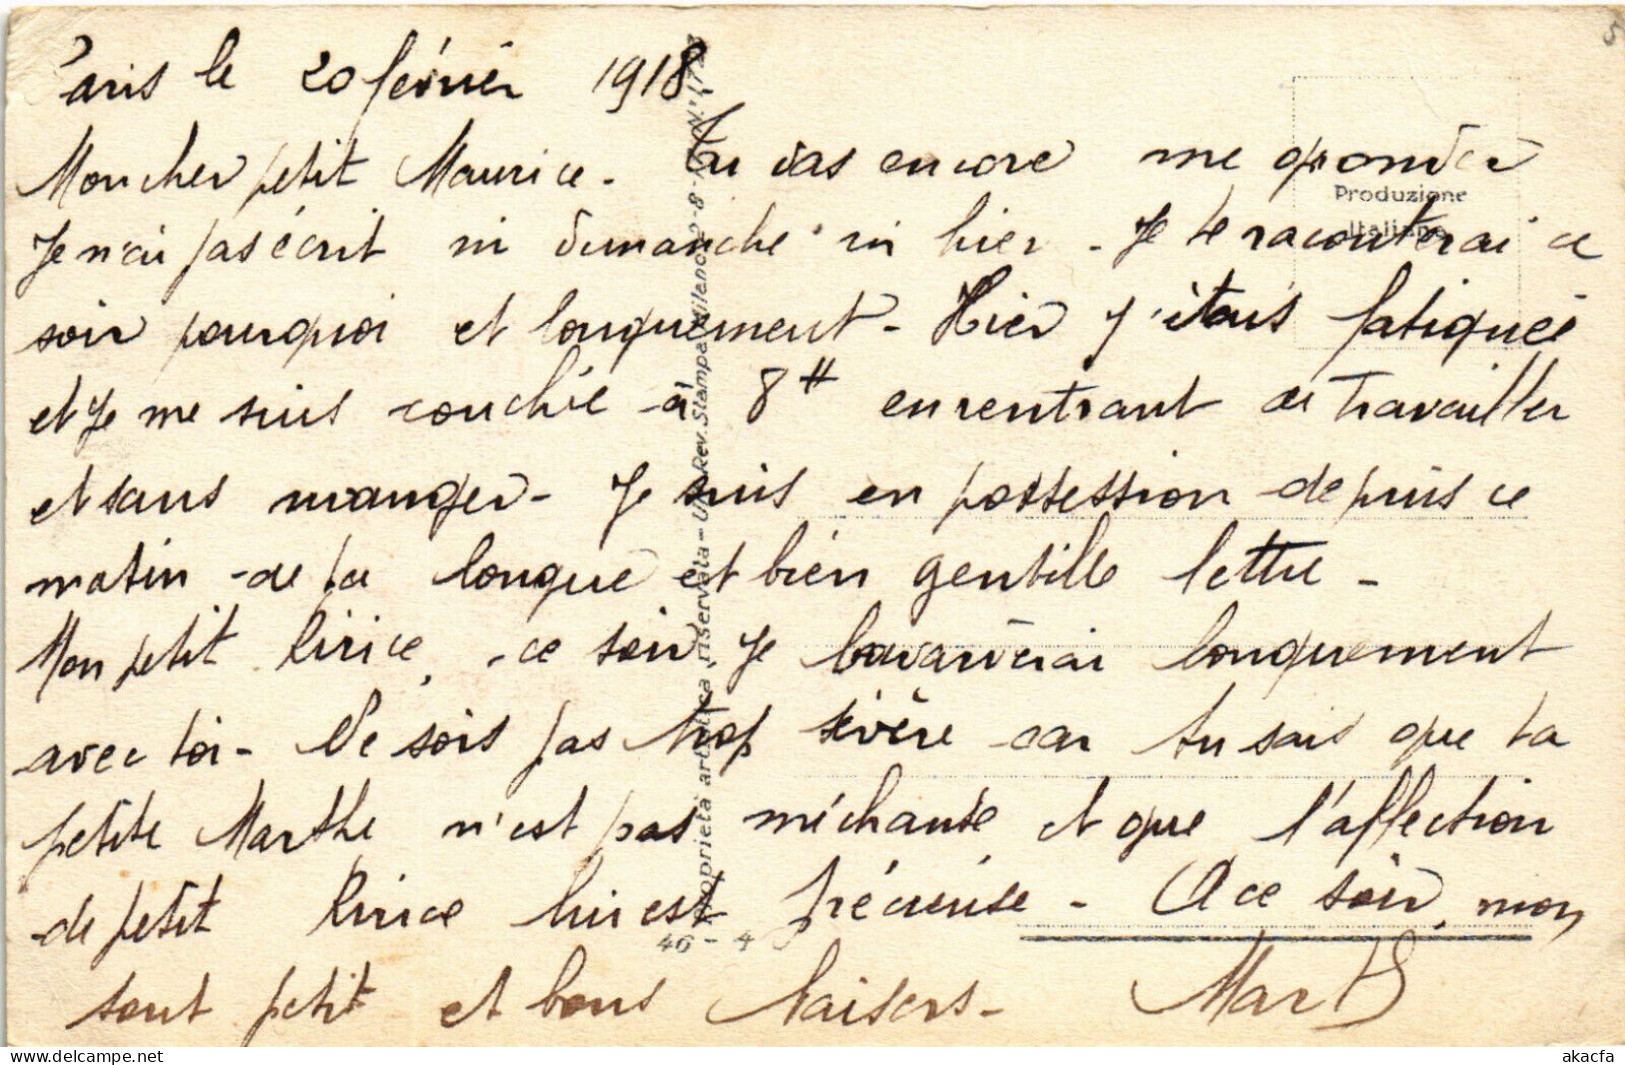 Paris le 20 février 1918
Mon cher petit Maurice. Tu vas encore me gronder
Je n'ai pas écrit ni dimanche ni hier - Je te raconterai ce
soir pourquoi et longuement - Hier j'étais fatiguée
et je me suis couchée à 8H en rentrant de travailler
et sans manger - Je suis en possession depuis ce
matin de ta longue et bien gentille lettre -
Mon petit Ririce, ce soir je bavarderai longuement
avec toi - Ne sois pas trop sévère car tu sais que ta
petite Marthe n'est pas méchante et que l'affection
de petit Ririce lui est précieuse - A ce soir, mon
tout petit et bons baisers - Marth
Produzione
Italiana
Proprietà artistica riservata - Uff. Rev. Stampa Milano 2-8-
46 - 4
5
delcampe.net
akacfa